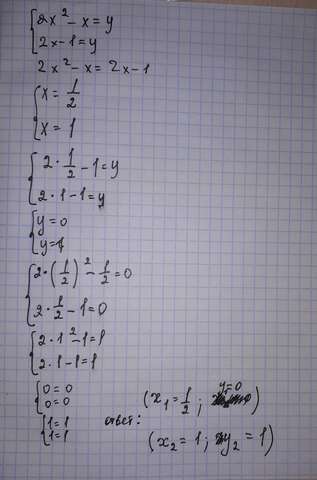 2x² - x = y
2x - 1 = y
2x² - x = 2x - 1
x = 1/2
x = 1
2 · 1/2 - 1 = y
2 · 1 - 1 = y
y = 0
y = 1
2 · (1/2)² - 1/2 = 0
2 · 1/2 - 1 = 0
2 · 1² - 1 = 1
2 · 1 - 1 = 1
0 = 0
0 = 0
1 = 1
1 = 1
ответ:
(x₁ = 1/2 ; y₁ = 0)
(x₂ = 1 ; y₂ = 1)